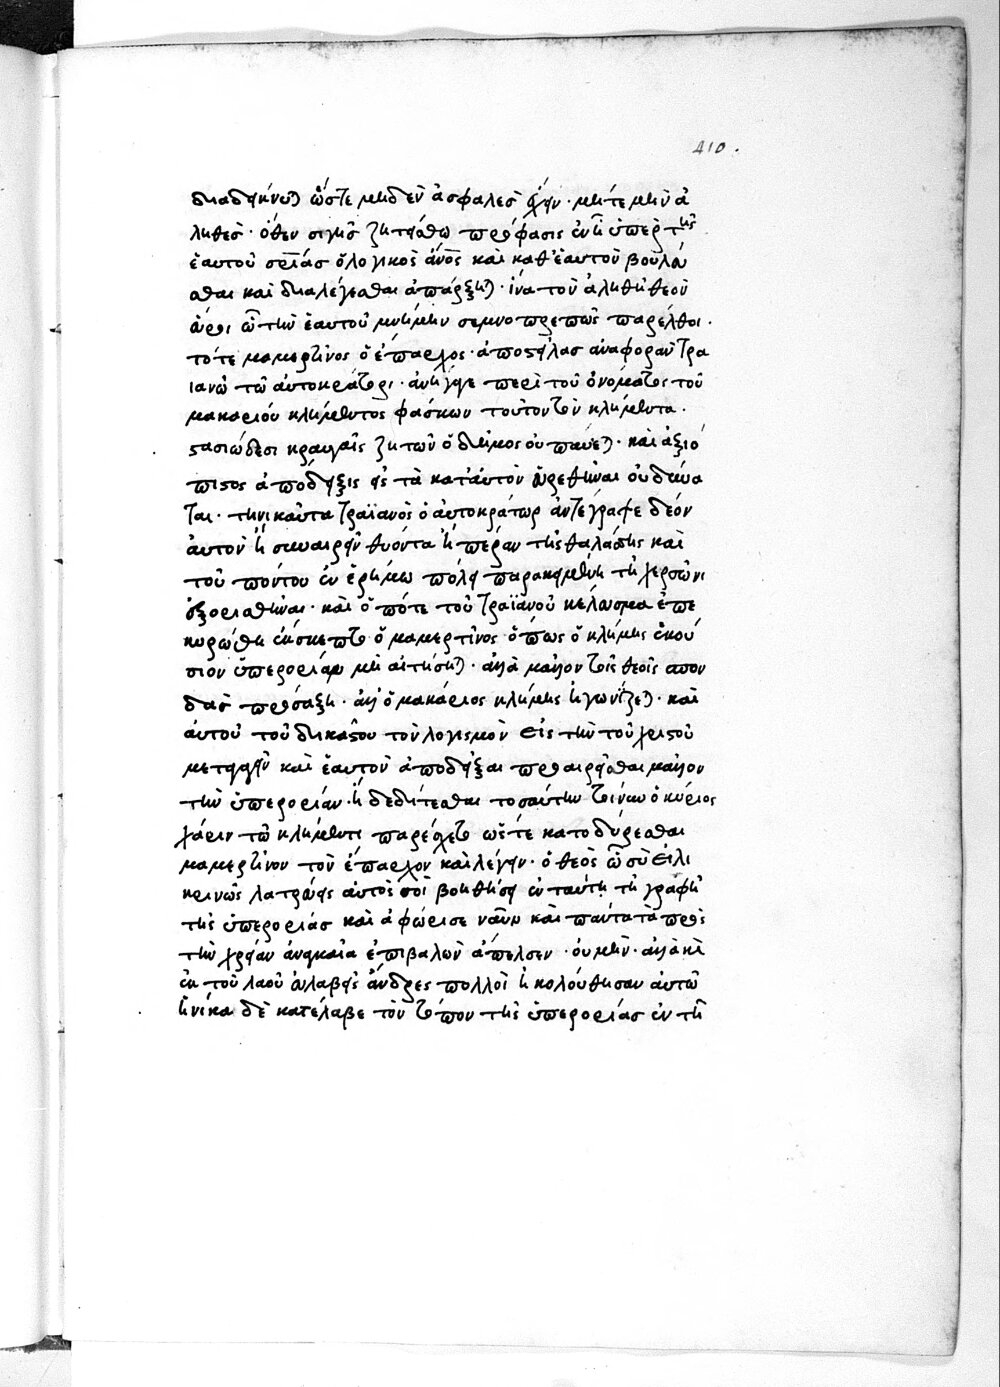 410.
διαδείκνυται ὥστε μηδὲν ἀσφαλὲς ἔχειν· μήτε μὴν ἀ
ληθές· ὅθεν σιγῆς ζητείσθω πρόφασις ἐν ᾗ ὑπὲρ τῆς
ἑαυτοῦ σρίας ὁ λογικὸς ἄνος καὶ καθ' ἑαυτὸν βουλεύ
σθαι καὶ διαλέγεσθαι ἀπάρξηται· ἵνα τὸν ἀληθῆ θεὸν
εὕροι ᾧ τὴν ἑαυτοῦ μνήμην σεμνοπρεπῶς παρέλθοι·
τότε μαμερτῖνος ὁ ἔπαρχος· ἀποστείλας ἀναφορὰν τρα
ιανῷ τῷ αὐτοκράτορι· ἀνήγγειλε περὶ τοῦ ὀνόματος τοῦ
μακαρίου κλήμεντος φάσκων τοῦτον τὸν κλήμεντα·
στασιώδεσι κραυγαῖς ζητῶν ὁ δῆμος οὐ παύεται· καὶ ἀξιό
πιστος ἀπόδειξις εἰς τὰ κατ' αὐτὸν εὑρεθῆναι οὐ δύνα
ται· τηνικαῦτα τραϊανὸς ὁ αὐτοκράτωρ ἀντέγραψε δέον
αὐτὸν ἢ συναιρεῖν θύοντα ἢ πέραν τῆς θαλάσσης καὶ
τοῦ πόντου ἐν ἐρήμῳ πόλει παρακειμένῃ τῇ χερσῶνι
ἐξορισθῆναι· καὶ ὁπότε τοῦ τραϊανοῦ κέλευσμα ἐπε
κυρώθη ἐσκέπτετο ὁ μαμερτῖνος ὅπως ὁ κλήμης ἑκού
σιον ὑπερορίαν μὴ αἰτήσηται· ἀλλὰ μᾶλλον τοῖς θεοῖς σπον
δὰς προσάξῃ· ἀλλ' ὁ μακάριος κλήμης ἠγωνίζετο· καὶ
αὐτοῦ τοῦ δικαστοῦ τὸν λογισμὸν εἰς τὴν τοῦ χριστοῦ
μεταγαγεῖν καὶ ἑαυτὸν ἀποδεῖξαι προαιρεῖσθαι μᾶλλον
τὴν ὑπερορίαν· ἢ δεδίτεσθαι τοσαύτην τοίνυν ὁ κύριος
χάριν τῷ κλήμεντι παρέσχετο ὥστε κατοδύρεσθαι
μαμερτῖνον τὸν ἔπαρχον καὶ λέγειν· ὁ θεὸς ᾧ σὺ εἰλι
κρινῶς λατρεύεις αὐτός σοι βοηθήσει ἐν ταύτῃ τῇ γραφῇ
τῆς ὑπερορίας καὶ ἀφώρισε ναῦν καὶ πάντα τὰ πρὸς
τὴν χρείαν ἀναγκαῖα ἐπιβαλὼν ἀπέλυσεν· οὐ μὴν· ἀλλὰ καὶ
ἐκ τοῦ λαοῦ εὐλαβεῖς ἄνδρες πολλοὶ ἠκολούθησαν αὐτῷ
ἡνίκα δὲ κατέλαβε τὸν τόπον τῆς ὑπερορίας ἐν τῇ